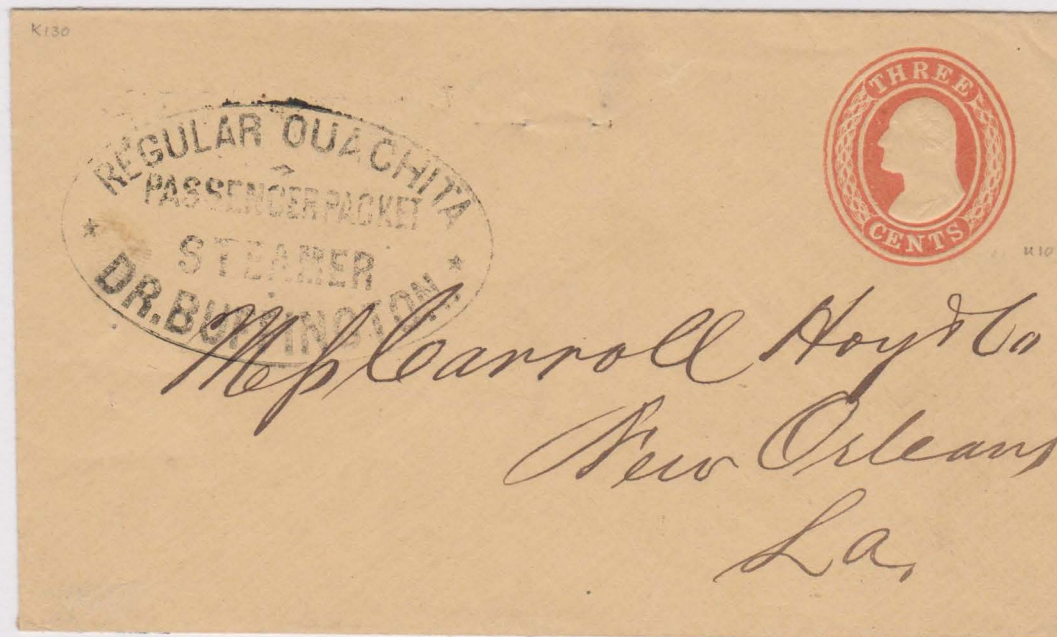 K130
REGULAR OUACHITA
PASSENGER PACKET
STEAMER
★ DR. BUFFINGTON. ★
THREE
CENTS
U10
Messrs Carroll Hoy & Co
New Orleans
La.